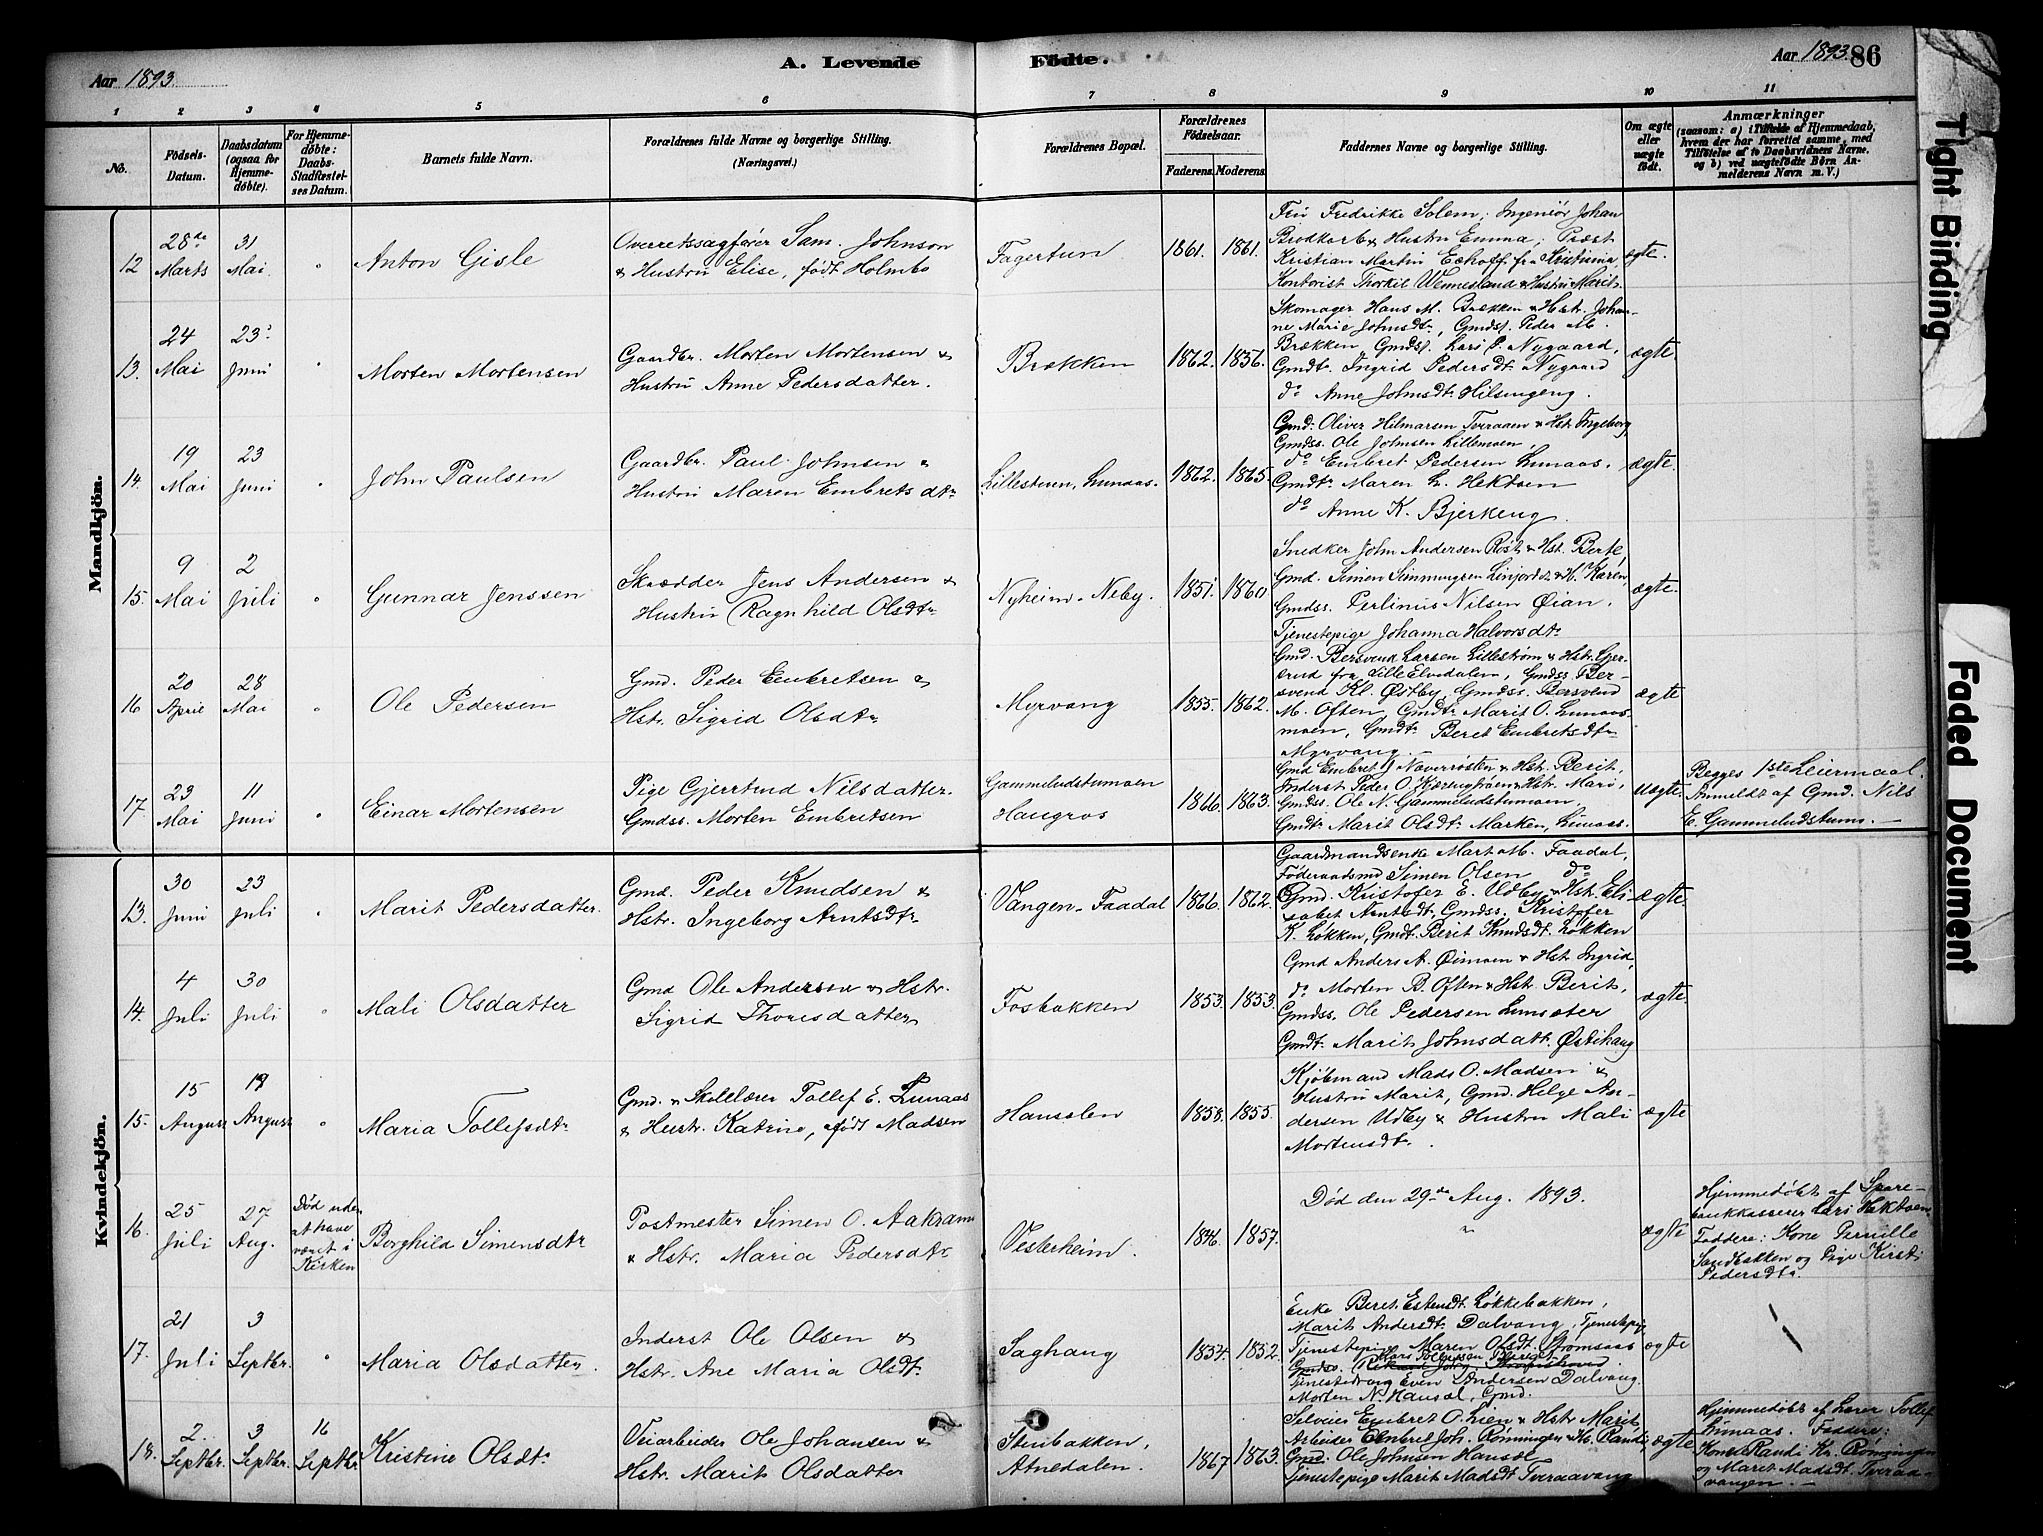 Aar 1893.
A. Levende
Fødte.
Aar 1893.
86
1 2 3 4 5 6 7 8 9 10 11
No.
Fødsels-Datum.
Daabsdatum (ogsaa for Hjemmedøbte).
For Hjemmedøbte: Daabs-Stadfæstelses Datum.
Barnets fulde Navn.
Forældrenes fulde Navne og borgerlige Stilling.
(Næringsvei.)
Forældrenes Bopæl.
Forældrenes Fødselsaar.
Faderens. Moderens.
Faddernes Navne og borgerlige Stilling.
Om ægte eller uægte født.
Anmærkninger
(saasom: a) i Tilfælde af Hjemmedaab, hvem der har forrettet samme, med Tilføielse af to Daabsvidners Navne, og b) ved uægtefødte Børn Anmelderens Navn m. V.)
Mandkjøn.
12 28de Marts 31 Mai " Anton Gisle
Overretssagfører Sam. Johnson
& Hustru Elise, født Holmbo
Fagertun 1861. 1861.
Frü Fredrikke Solem; Ingeniør Johan
Brodkorb & Hustru Emma; Præst
Kristian Martin Eckhoff fra Kristiania
Kontorist Thorkil Wennesland & Hustru Marit.
ægte.
13. 24 Mai 23 Juni " Morten Mortensen
Gaardbr. Morten Mortensen &
Hustru Anne Pedersdatter.
Brækken 1862. 1856.
Skomager Hans M. Brækken & Hstr. Johan-
ne Marie Johnsdtr, Gmdss. Peder M.
Brækken, Gmdss. Lars P. Nygaard,
Gmdtr. Ingrid Pedersdtr Nygaard
do Anne Johnsdtr Hilsingeng.
ægte
14. 19 Mai 23 Juni " John Paulsen
Gaardbr. Paul Johnsen &
Hustru Maren Embretsdtr
Lillestuen, Lunaas. 1862. 1865.
Gmd. Oliver Hilmarsen Tveraaen & Hst. Ingeborg,
Gmdss. Ole Johnsen Lillemoen,
do Embret Pedersen Lunaas.
Gmdtr Maren L. Hektoen
do Anne K. Bjerkeng.
ægte.
15. 9 Mai 2 Juli " Gunnar Jenssen
Skrædder Jens Andersen &
Hustru Ragnhild Olsdtr
Nyheim. Neby. 1851. 1860.
Snedker John Andersen Røst & Hst. Berte,
Gmd. Simen Simmingsen Linjordet & H. Karen,
Gmdss. Perlinus Nilsen Øian,
Tjenestepige Johanna Halvorsdtr
ægte.
16 20 April 28 Mai " Ole Pedersen
Gmd. Peder Embretsen &
Hstr. Sigrid Olsdtr
Myrvang 1855. 1862.
Gmd. Bersvend Larsen Lillestrøm & Hstr. Gjer-
trud fra Lille Elvedalen, Gmdss. Ber-
svend Kl. Østby, Gmdss. Bersvend
M. Often, Gmdtr Marit O. Lunaas-
moen, Gmdtr Beret Embretsdtr
Myrvang.
ægte
17. 23 Mai 11 Juni " Einar Mortensen
Pige Gjertrud Nilsdatter.
Gmdss. Morten Embretsen
Gammeludstumoen
Haugros
1866. 1863.
Gmd Embret J. Naverrøsten & Hst. Berit,
Inderst Peder O. Kjærengtrøen & Hst. Mari,
Gmdss. Ole N. Gammeludstumoen,
Gmdtr Marit Olsdtr Marken, Lunaas.
uægte.
Begges 1ste Leiermaal.
Anmeldt af Gmd. Nils
E. Gammeludstumo. —
Kvindekjøn.
13. 30 Juni 23 Juli " Marit Pedersdatter.
Gmd. Peder Knudsen &
Hstr. Ingeborg Arntsdtr
Vangen. Faadal 1866. 1862.
Gaardmandsenke Mart M. Faadal,
Føderaadsmd Simen Olsen do
Gmd. Kristofer E. Udby & Hst. Eli-
sabet Arntsdt. Gmdss. Kristofer
K. Løkken, Gmdt. Berit Knudsdt. Løkken
ægte.
14. 4 Juli 30 Juli " Mali Olsdatter
Gmd Ole Andersen & Hstr.
Sigrid Thoresdatter
Fosbakken 1853. 1853.
Gmd Anders A. Øimoen & Hst Ingrid,
do Morten B. Often & Hst Berit,
Gmdss. Ole Pedersen Lunsæter
Gmdt. Marit Johnsdatt. Østihaug
ægte.
15. 15 August 19 August " Maria Tollefsdtr
Gmd. & Skolelærer Tollef E. Lunaas
& Hustr. Katrine, født Madsen
Hausslen 1858. 1855.
Kjøbmand Mads O. Madsen &
Hustru Marit, Gmd. Helge An-
dersen Udby & Hustru Mali
Mortensdt.
ægte
16. 25 Juli 27 Aug. Død uden at have været i Kirken Borghild Simensdtr
Postmester Simen O. Aakrann
& Hstr. Maria Pedersdtr
Vesterheim. 1846. 1857.
Død den 29de Aug. 1893.
"
ægte
Hjemmedøbt af Spare-
bankkasserer Lars Hektoen.
Faddere: Kone Pernille
Sandbakken og Pige Kirsti
Pedersdtr.
17. 21 Juli 3 Septbr. " Maria Olsdatter.
Inderst Ole Olsen &
Hstr. Ane Maria Olsdt.
Saghaug 1854. 1852.
Enke Beret Estensdt. Løkkebakken,
Marit Andersdt. Dalvang, Tjenestepige,
Tjenestepige Maren Olsdt. Strømsaas
Gmdss.
Tjenestedreng Even Andersen Dalvang.
Morten N. Hausal, Gmd.
ægte
18. 2 Septbr. 3 Septbr. 16 Septbr Kristine Olsdtr
Veiarbeider Ole Johansen &
Hstr. Marit Olsdatter
Stenbakken,
Atnedalen.
1867 1863.
Selveier Embret O. Lien & Hstr Marit,
Arbeider Embret Joh. Rønningen & H. Randi,
Gmd. Ole Johnsen Hausdl
Tjenestepige Marit Madsdt Tveraavang
ægte
Hjemmedøbt af Lærer Tollef
Lunaas. Faddere:
Kone Randi Kr. Rønningen
og Maret Madsdt. Tveraa-
vangen. —
Tight Binding
Faded Document